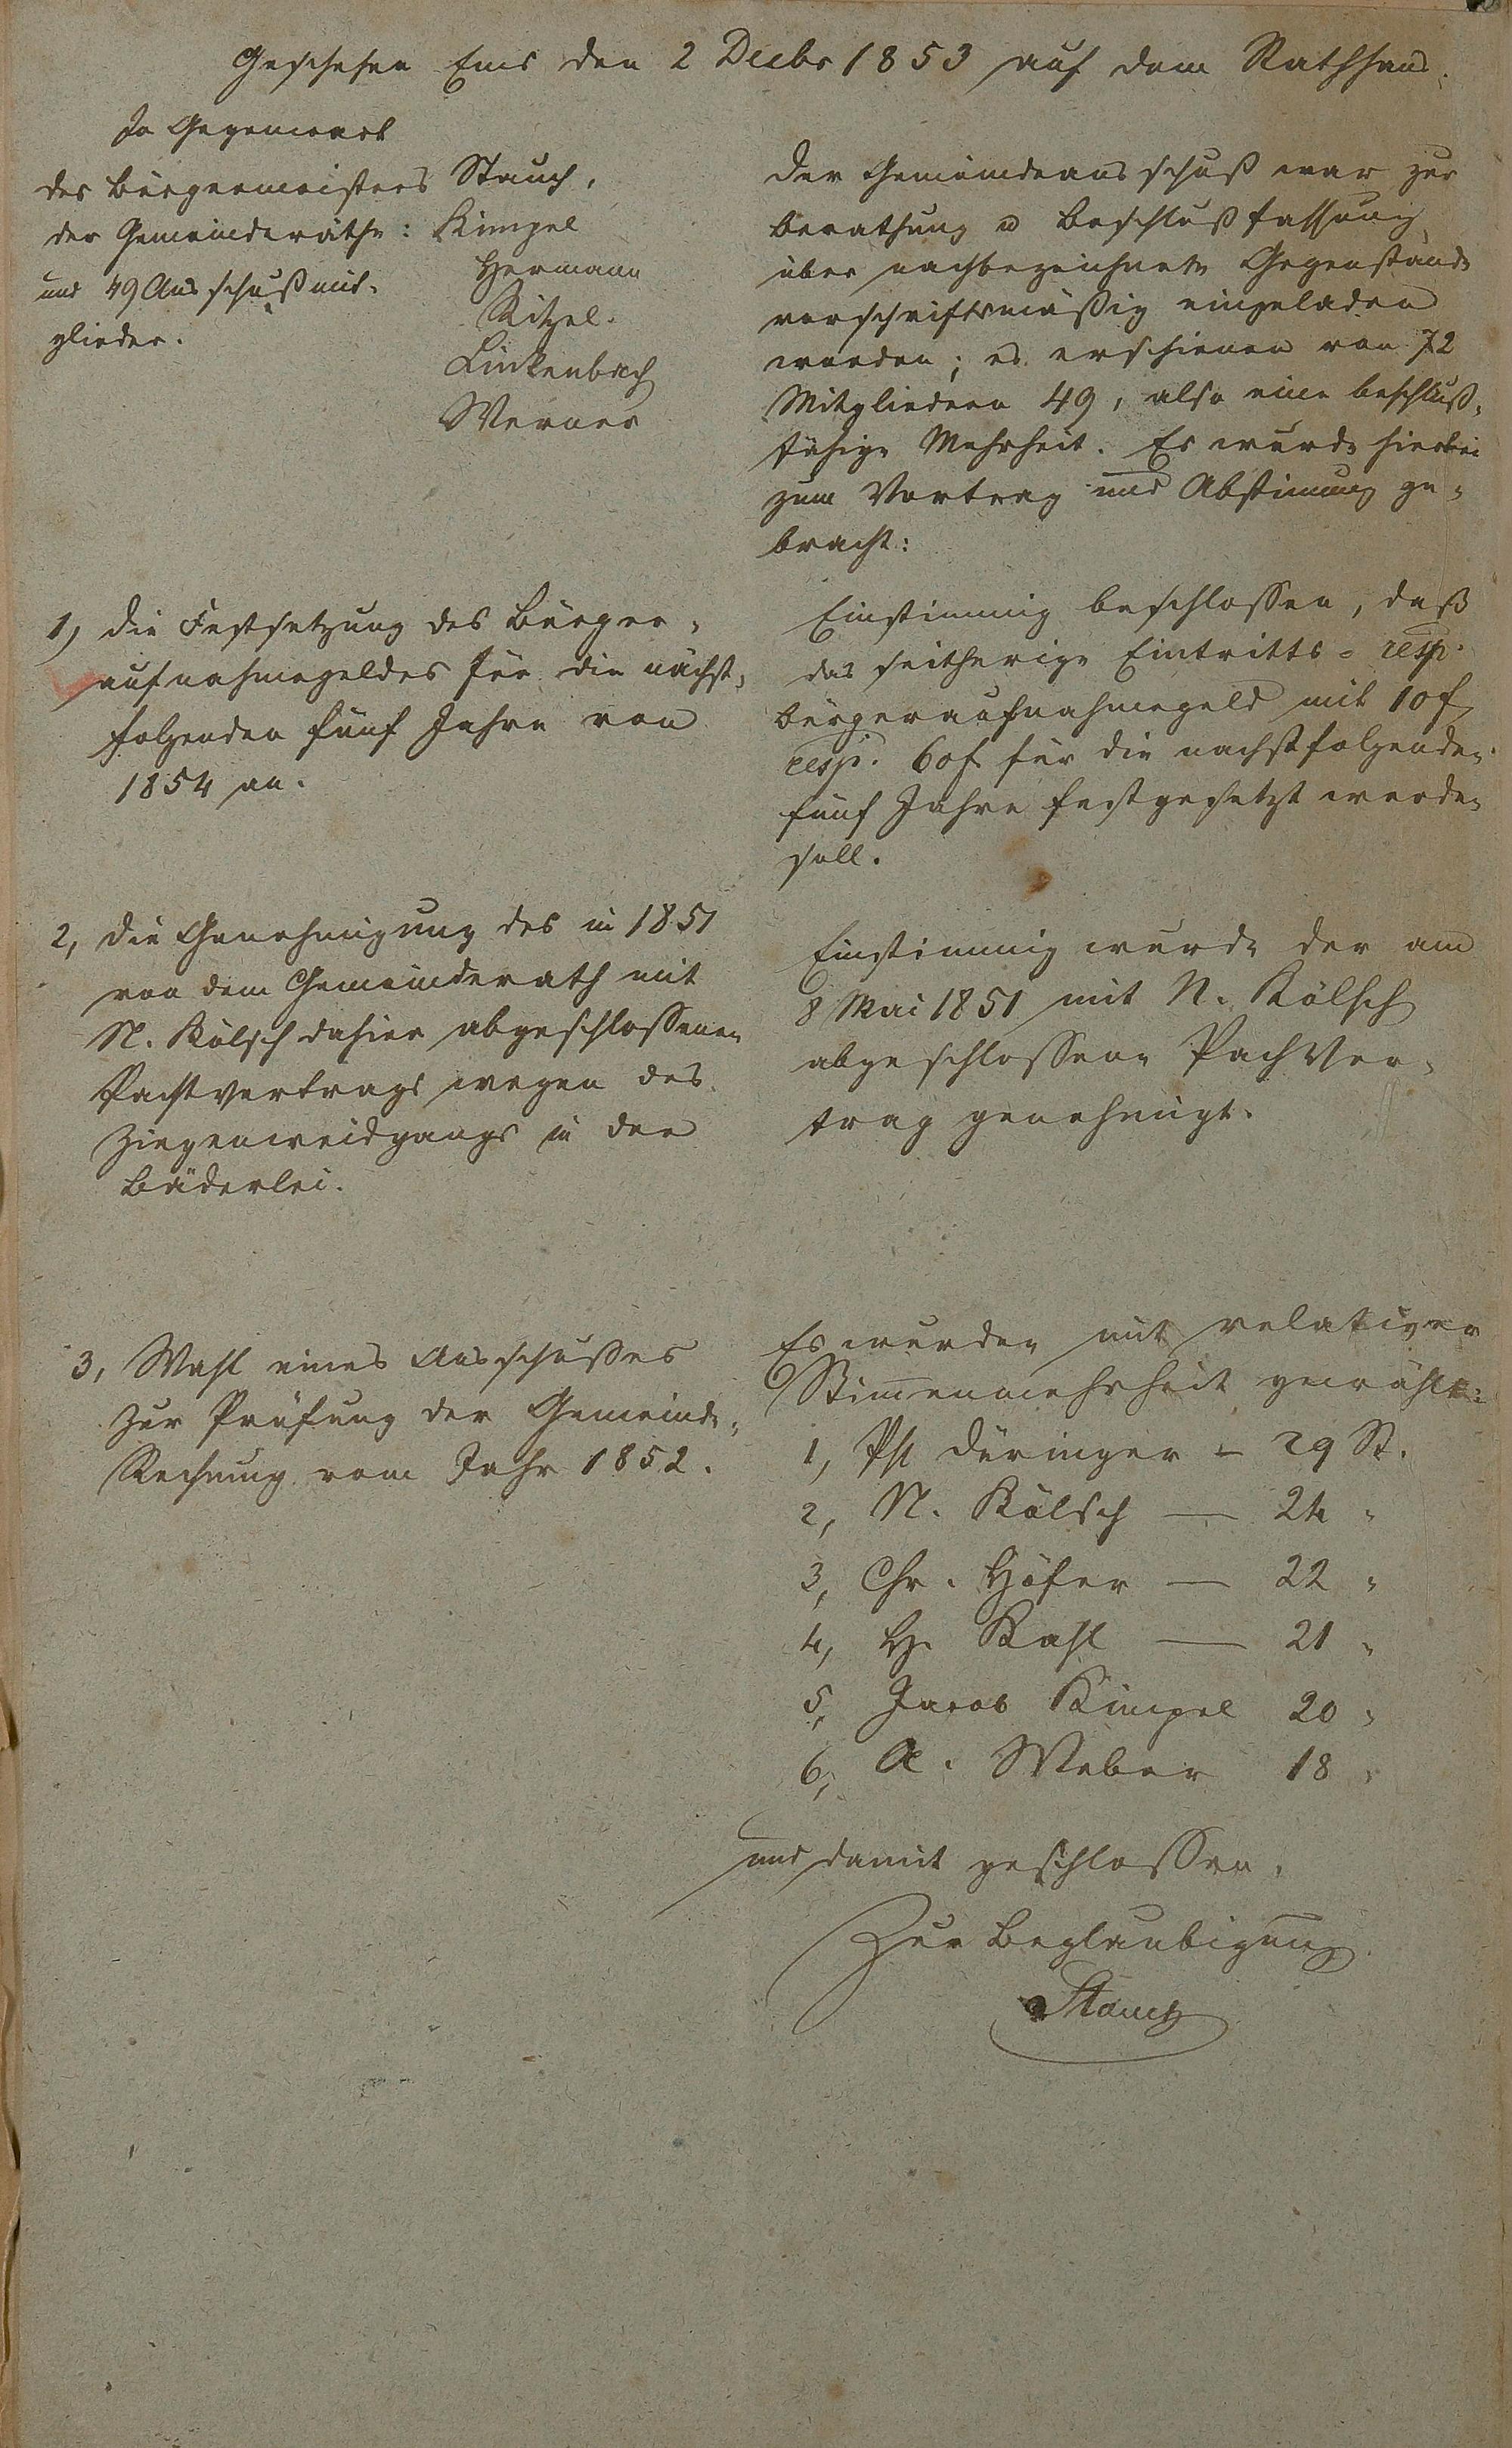 Geschehen Ems den 2 Decbr 1853 auf dem Rathhaus.
In Gegenwart
des Bürgermeisters Stauch,
der Gemeinderäthe: Kimpel
Hermann
und 49 Ausschußmit-
Ritzel.
glieder.
Linkenbach
Werner
Der Gemeindeausschuß war zur
Berathung u Beschlußfassung
über nachbezeichnete Gegenstände
vorschriftsmäßig eingeladen
worden; es erschienen von 72
Mitgliedern 49, also eine beschluß-
fähige Mehrheit. Es wurde hierbei
zum Vortrag und Abstimmung ge-
bracht:
1, Die Festsetzung des Bürger-
aufnahmegeldes für die nächst-
folgenden fünf Jahre von
1854 an.
Einstimmig beschlossen, daß
das seitherige Eintritts- resp.
Bürgeraufnahmegeld mit 10 f
resp. 60 f für die nachstfolgenden
fünf Jahre festgesetzt werden
soll.
2, Die Genehmigung des in 1851
von dem Gemeinderath mit
N. Kölsch dahier abgeschlossenen
Pachtvertrags wegen des
Ziegenweidgangs in der
Bäderlei.
Einstimmig wurde der am
8 Mai 1851 mit N. Kölsch
abgeschlossene PachVer-
trag genehmigt.
3, Wahl eines Ausschußes
zur Prüfung der Gemeinde-
Rechnung vom Jahr 1852.
Es wurden mit relativer
Stimmenmehrheit gewählt:
1, Ph Düringer – 29 St.
2, N. Kölsch — 24 "
3, Chr. Höfer — 22 "
4, H. Kahl — 21 "
5, Jacob Kimpel 20 "
6, A. Weber 18 "
und damit geschlossen.
Zur Beglaubigung
Stauch